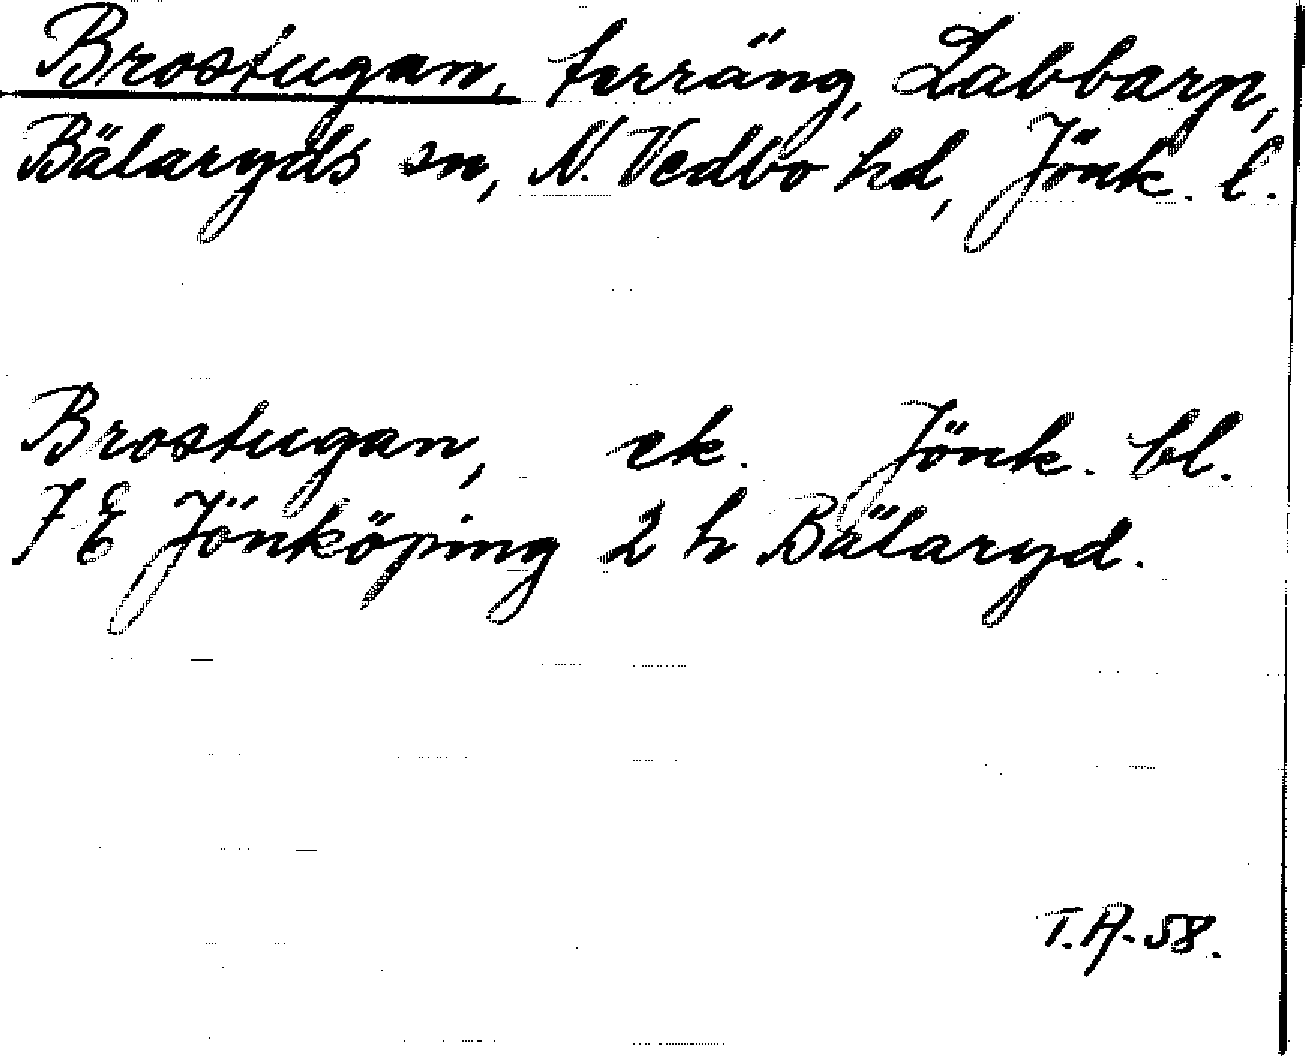 Brostugan, terräng, Labbarp,
Bälaryds sn, N. Vedbo hd, Jönk. l.
Brostugan, ek. Jönk. bl.
7 E Jönköping 2 h Bälaryd.
T.A-58.